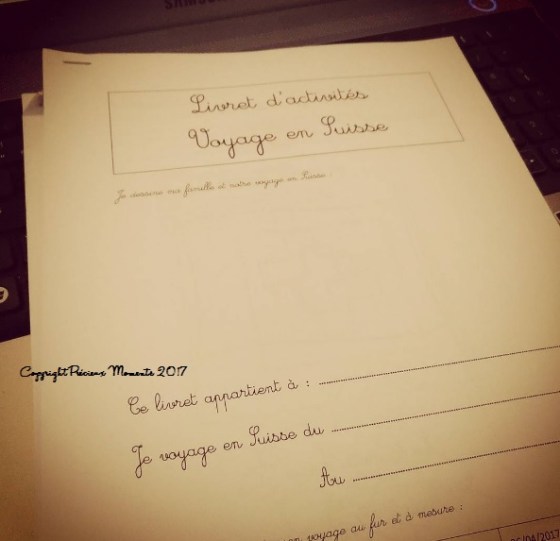 SAMSUNG
Livret d'activités
Voyage en Suisse
Je dessine ma famille et notre voyage en Suisse :
Copyright Précieux Moments 2017
Ce livret appartient à :
Je voyage en Suisse du
Au
voyage au fur et à mesure :